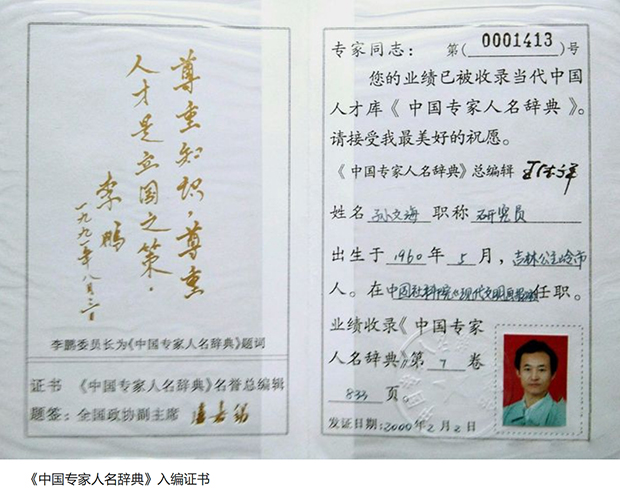 尊重知识，尊重
人才是立国之策。
李鹏
一九九一年八月三日
李鹏委员长为《中国专家人名辞典》题词
证书 《中国专家人名辞典》名誉总编辑
题签：全国政协副主席 卢嘉锡
专家同志： 第（0001413）号
您的业绩已被收录当代中国
人才库《中国专家人名辞典》。
请接受我最美好的祝愿。
《中国专家人名辞典》总编辑
姓名 孙文海 职称 研究员
出生于 1960 年 5 月，吉林公主岭市
人。在 中国社科院《现代文明画报》 任职。
业绩收录《中国专家
人名辞典》第 7 卷
833 页
发证日期：2000年2月2日
《中国专家人名辞典》入编证书